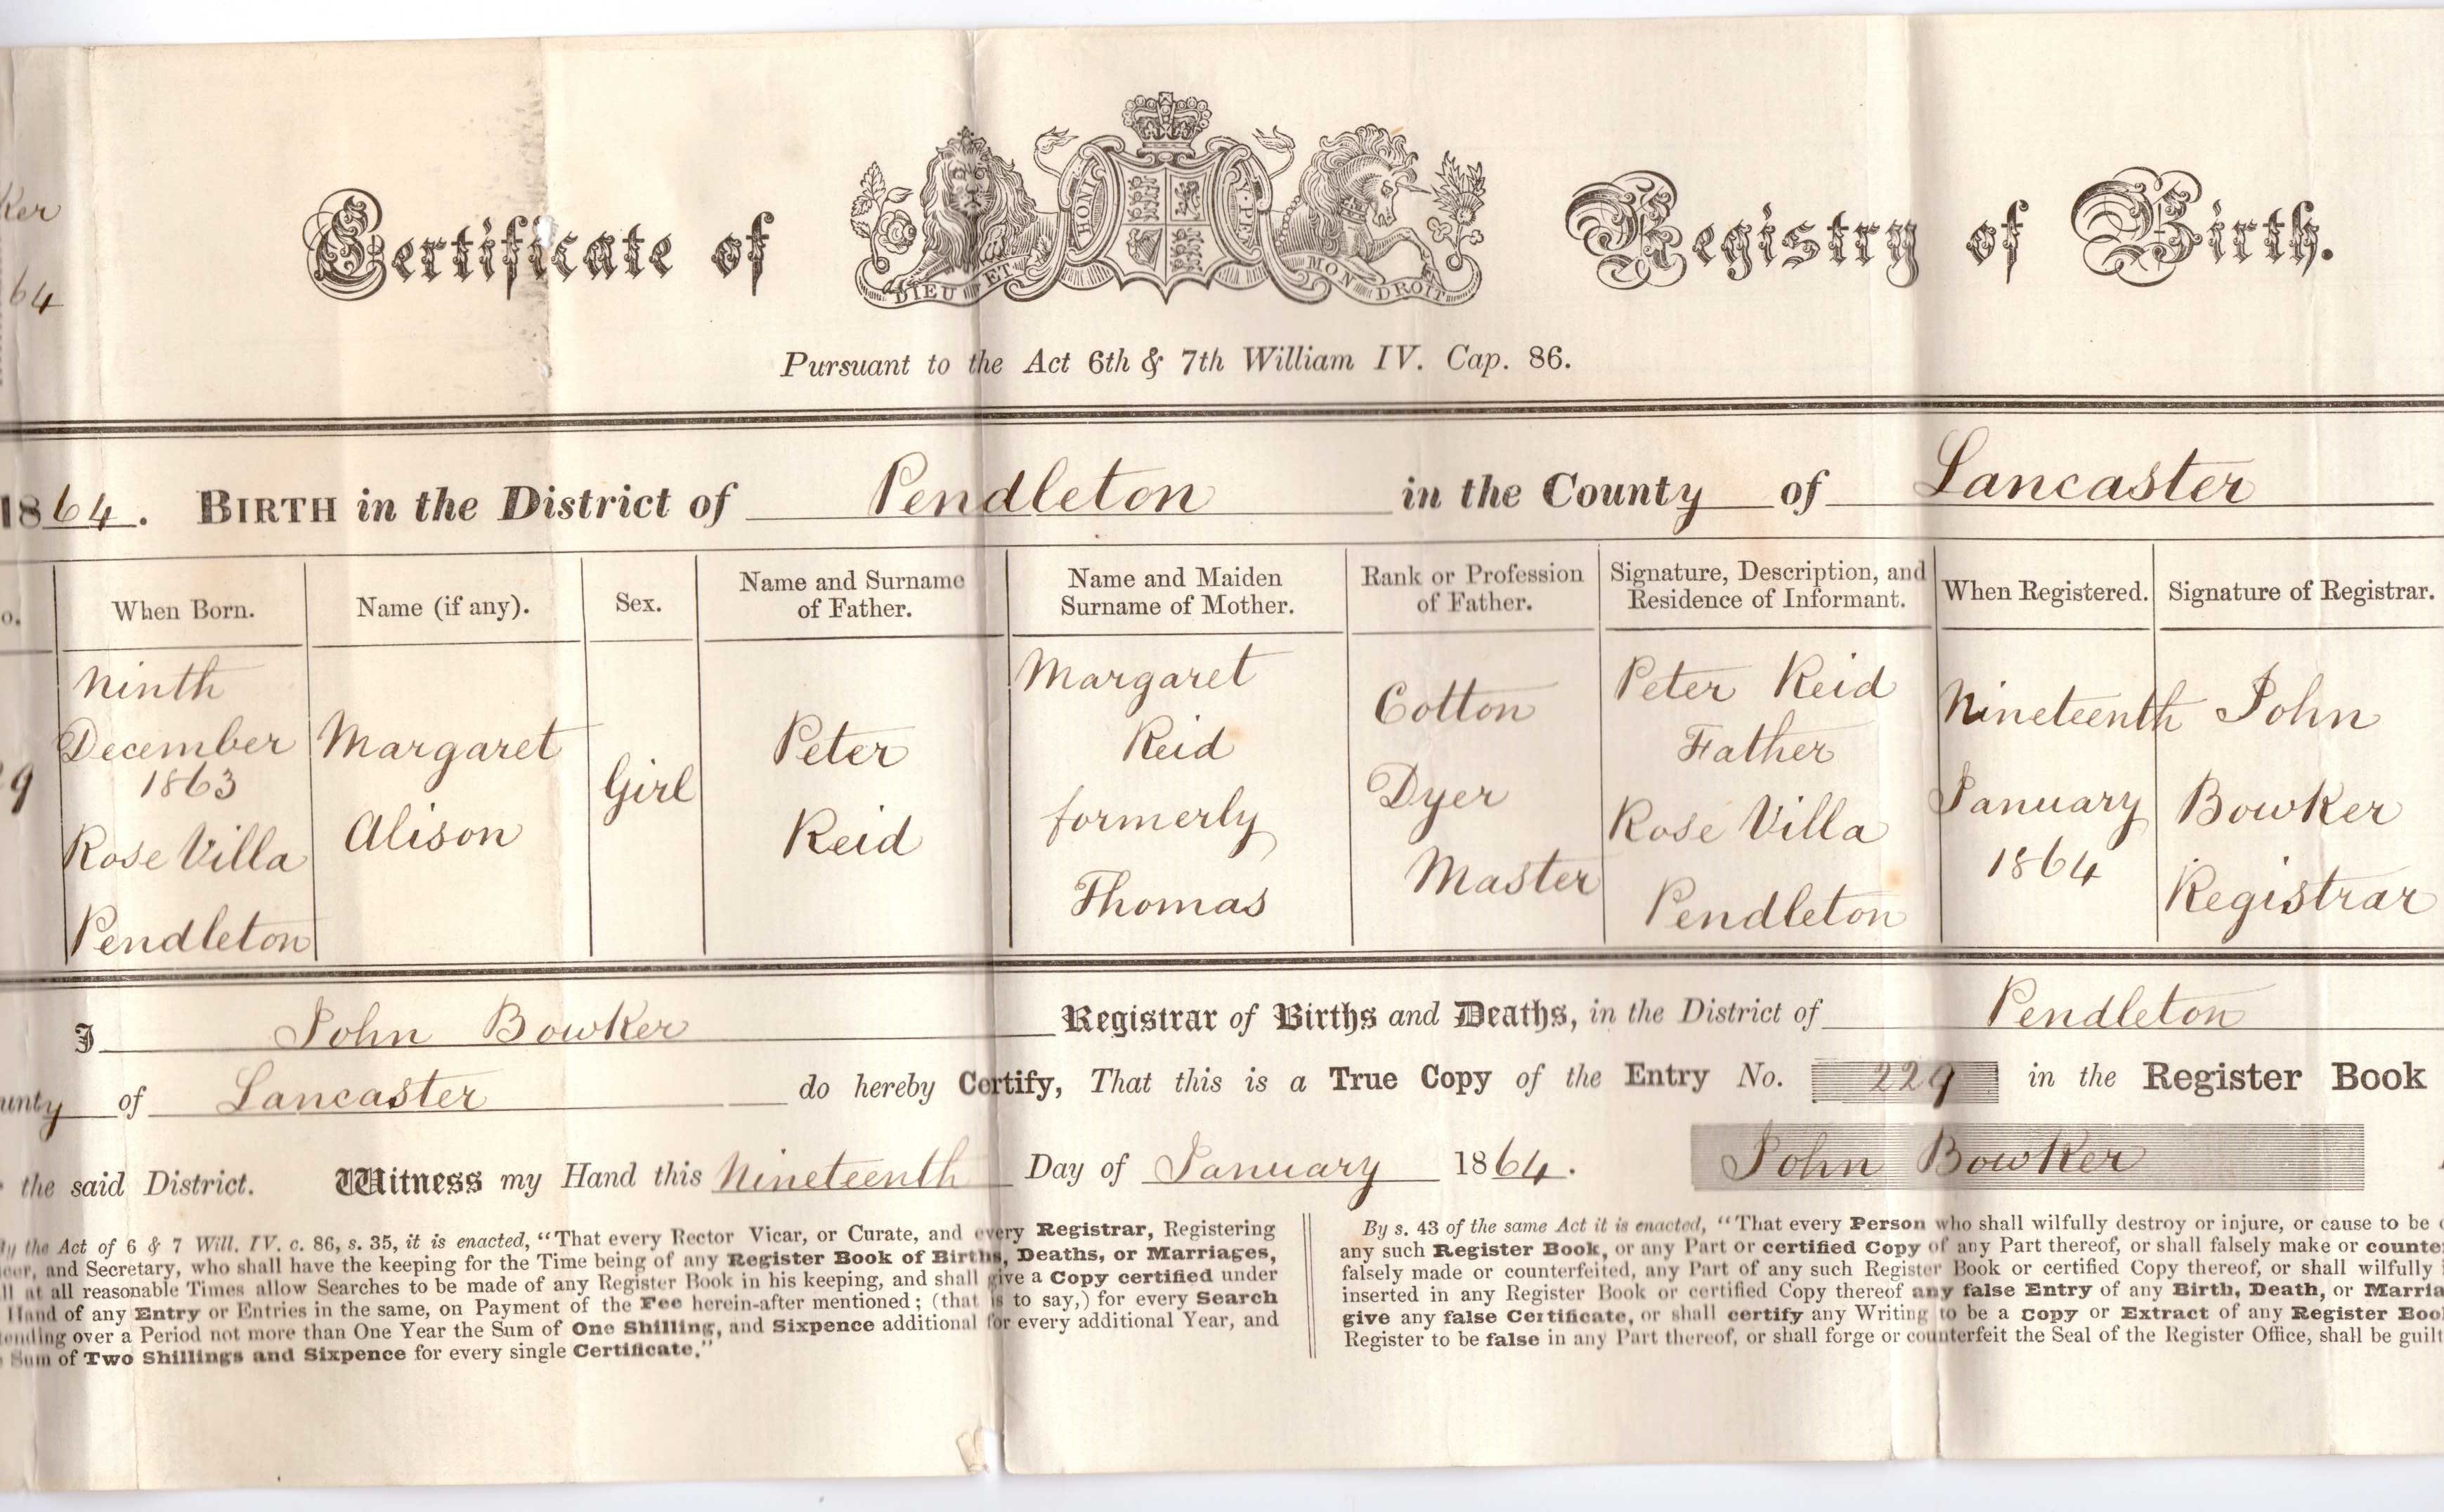 Ker
64
Certificate of Registry of Birth.
HONI Y PEN
DIEU ET MON DROIT
Pursuant to the Act 6th & 7th William IV. Cap. 86.
1864. BIRTH in the District of Pendleton in the County of Lancaster
o. When Born. Name (if any). Sex. Name and Surname of Father. Name and Maiden Surname of Mother. Rank or Profession of Father. Signature, Description, and Residence of Informant. When Registered. Signature of Registrar.
9
Ninth
December
1863
Rose Villa
Pendleton
Margaret
Alison
Girl
Peter
Reid
Margaret
Reid
formerly
Thomas
Cotton
Dyer
Master
Peter Reid
Father
Rose Villa
Pendleton
Nineteenth
January
1864
John
Bowker
Registrar
I John Bowker Registrar of Births and Deaths, in the District of Pendleton
unty of Lancaster do hereby Certify, That this is a True Copy of the Entry No. 229 in the Register Book
the said District. Witness my Hand this Nineteenth Day of January 1864. John Bowker
the Act of 6 & 7 Will. IV. c. 86, s. 35, it is enacted, "That every Rector Vicar, or Curate, and every Registrar, Registering
cer, and Secretary, who shall have the keeping for the Time being of any Register Book of Births, Deaths, or Marriages,
ll at all reasonable Times allow Searches to be made of any Register Book in his keeping, and shall give a Copy certified under
Hand of any Entry or Entries in the same, on Payment of the Fee herein-after mentioned; (that is to say,) for every Search
tending over a Period not more than One Year the Sum of One Shilling, and Sixpence additional for every additional Year, and
Sum of Two Shillings and Sixpence for every single Certificate."
By s. 43 of the same Act it is enacted, "That every Person who shall wilfully destroy or injure, or cause to be
any such Register Book, or any Part or certified Copy of any Part thereof, or shall falsely make or counte
falsely made or counterfeited, any Part of any such Register Book or certified Copy thereof, or shall wilfully
inserted in any Register Book or certified Copy thereof any false Entry of any Birth, Death, or Marria
give any false Certificate, or shall certify any Writing to be a Copy or Extract of any Register Boo
Register to be false in any Part thereof, or shall forge or counterfeit the Seal of the Register Office, shall be guilt